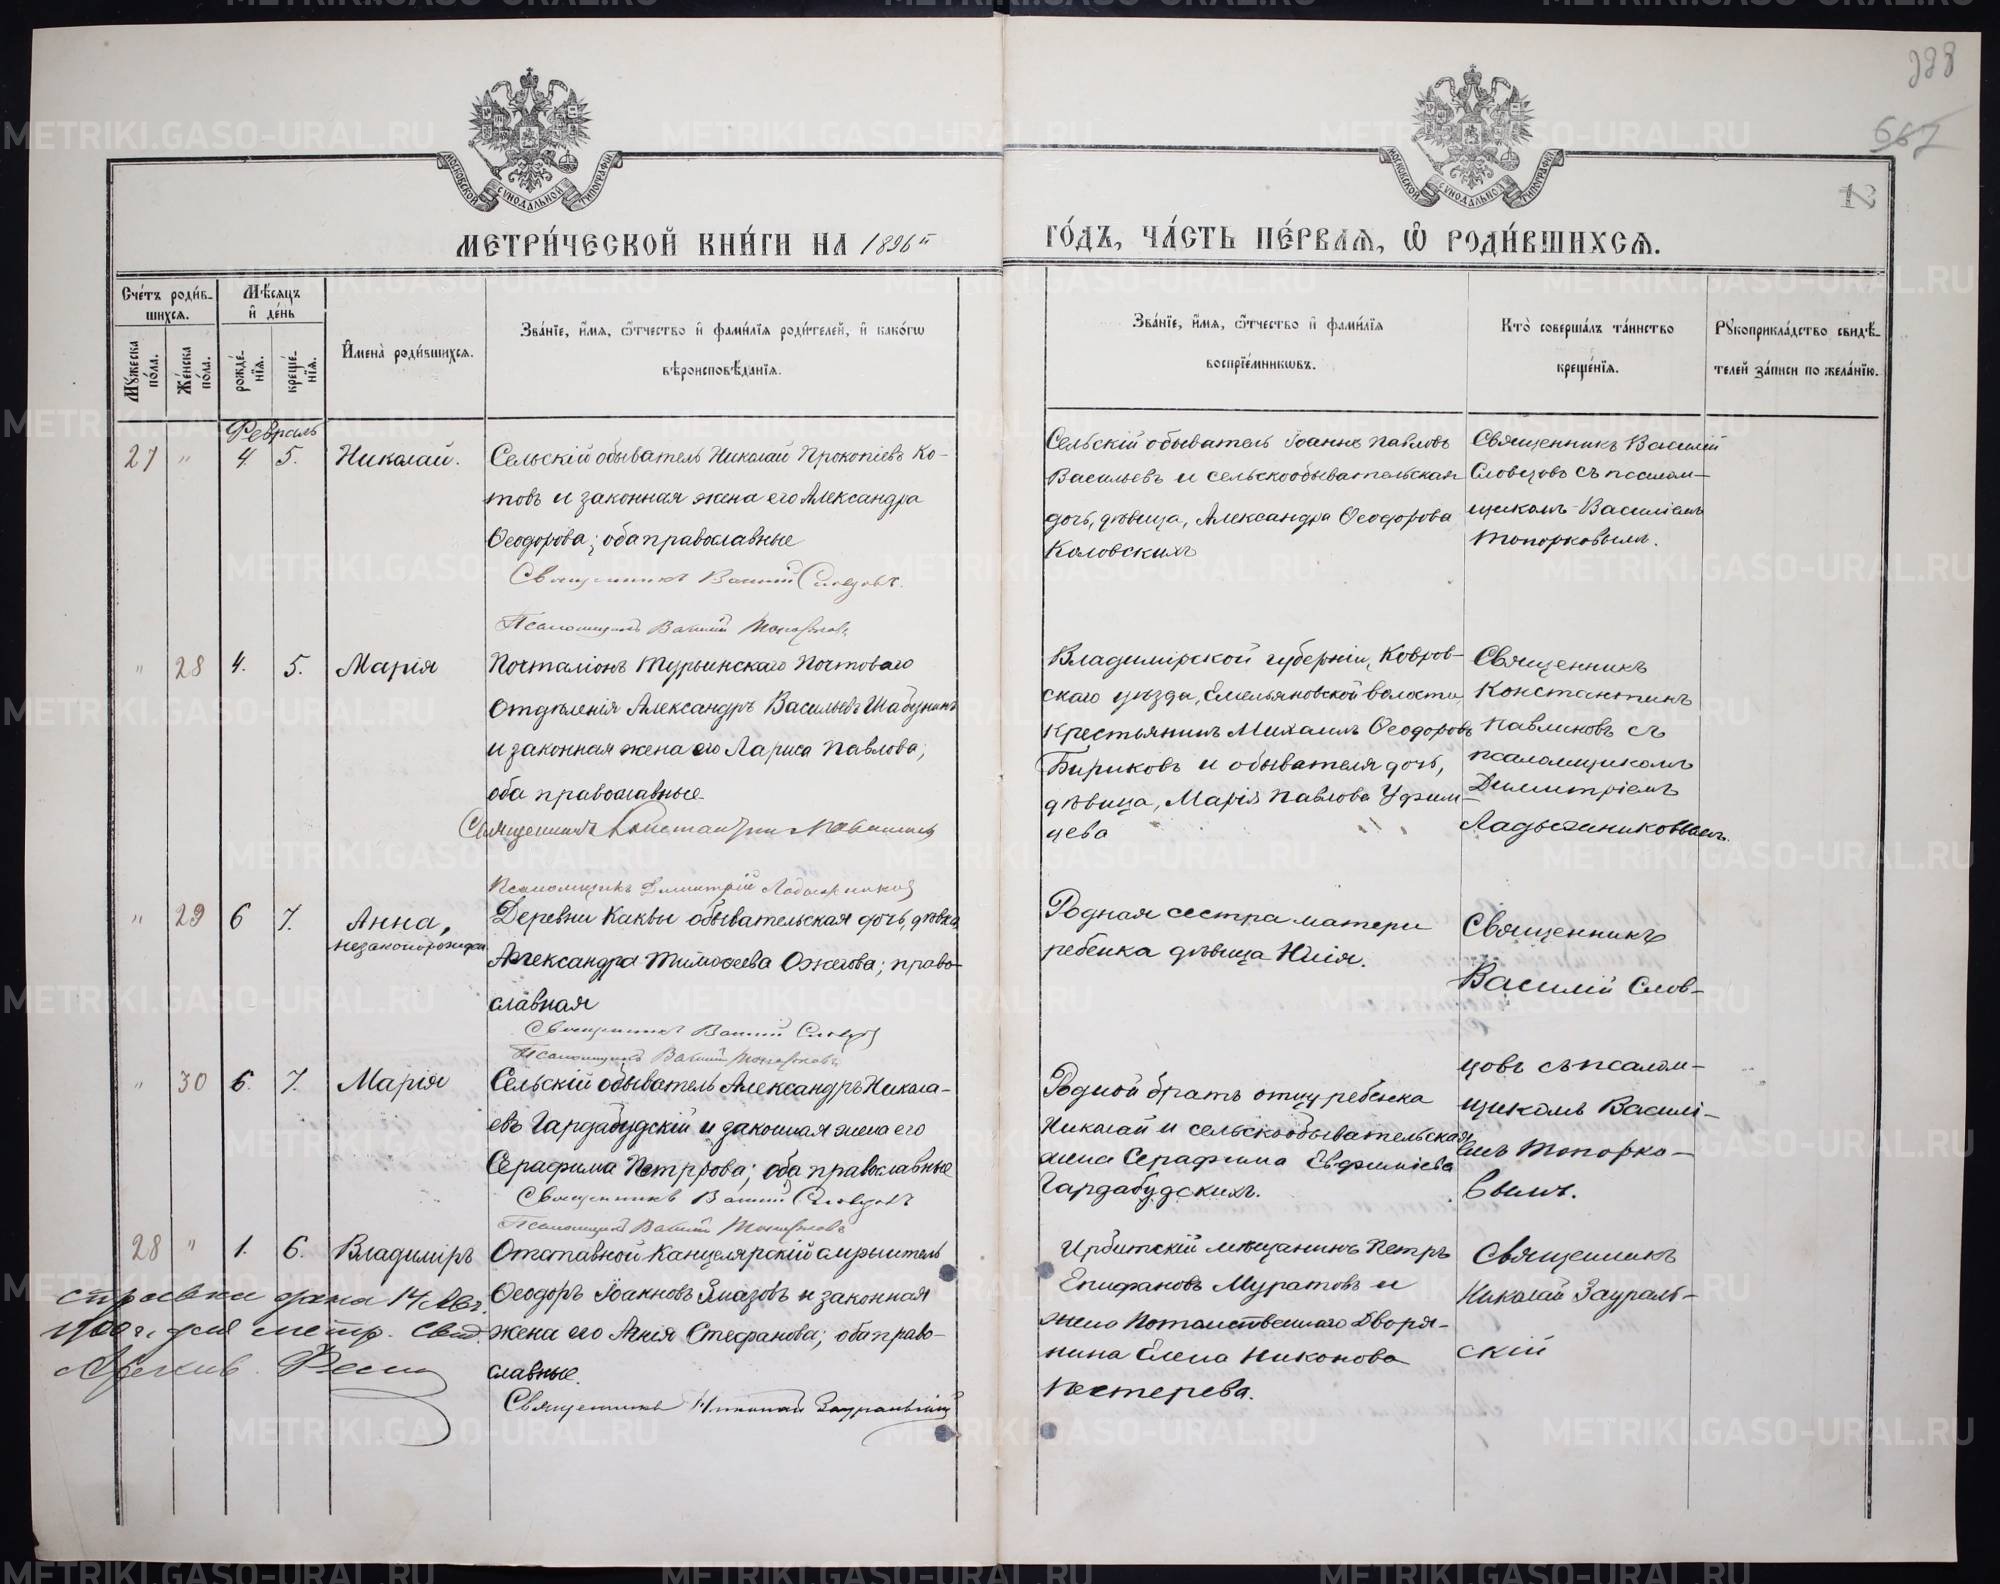 228
667
12
МОСКОВСКОЙ СѴНОДАЛЬНОЙ ТИПОГРАФІИ
МОСКОВСКОЙ СѴНОДАЛЬНОЙ ТИПОГРАФІИ
МЕТРИ́ЧЕСКОЙ КНИ́ГИ НА 1896й
ГО́ДЪ, ЧА́СТЬ ПЕ́РВАѦ, Ѡ РОДИ́ВШИХСѦ.
Сче́тъ роди́в-
шихсѧ.
Мꙋжеска по́ла.
Же́нска по́ла.
Мѣ́сѧцъ
и де́нь
рожде́-
нїѧ.
креще́-
нїѧ.
Имена̀ роди́вшихсѧ.
Зва́нїе, и́мѧ, ѻ҆́тчество и фами́лїѧ роди́телей, и како́гѡ
вѣроисповѣ́данїѧ.
Зва́нїе, и́мѧ, ѻ҆́тчество и фами́лїѧ
воспрїе́мникѡвъ.
Кто̀ соверша́лъ та́инство
креще́нїѧ.
Рꙋкоприкла́дство свидѣ́-
телей за́писи по жела́нїю.
Февраль
27 " 4. 5. Николай.
Сельскій обыватель Николай Прокопіевъ Ко-
товъ и законная жена его Александра
Ѳеодорова; оба православные
Священникъ Василій Словцовъ.
Псаломщикъ Василій Топорковъ
Сельскій обыватель Іоаннъ Павловъ
Васильевъ и сельскообывательская
дочь, дѣвица, Александра Ѳеодорова
Коловскихъ
Священникъ Василій
Словцовъ съ псалом-
щикомъ Василіемъ
Топорковымъ.
" 28 4. 5. Марія
Почталіонъ Турьинскаго Почтоваго
Отдѣленія Александръ Васильевъ Шабунинъ
и законная жена его Лариса Павлова;
оба православные
Священникъ Константинъ Павлиновъ
Псаломщикъ Димитрій Ладыжниковъ
Владимірской губерніи, Ковров-
скаго уѣзда, Емельяновской волости,
крестьянинъ Михаилъ Ѳеодоровъ
Бириковъ и обывателя дочь,
дѣвица, Марія Павлова Уфим-
цева
Священникъ
Константинъ
Павлиновъ съ
псаломщикомъ
Димитріемъ
Ладыжниковымъ.
" 29 6 7. Анна,
незаконорожден.
Деревни Каквы обывательская дочь, дѣвица
Александра Тимоѳеева Ожегова; право-
славная
Священникъ Василій Словцовъ
Псаломщикъ Василій Топорковъ
Родная сестра матери
ребенка дѣвица Юлія.
Священникъ
Василій Слов-
цовъ съ псалом-
щикомъ Василі-
емъ Топорко-
вымъ.
" 30 6. 7. Марія
Сельскій обыватель Александръ Никола-
евъ Гардабудскій и законная жена его
Серафима Петррова; оба православные
Священникъ Василій Словцовъ
Псаломщикъ Василій Топорковъ
Родной братъ отцу ребенка
Николай и сельскообывательская
жена Серафима Евфиміева
Гардабудскихъ.
28 " 1. 6. Владиміръ
Отставной Канцелярскій служитель
Ѳеодоръ Іоанновъ Глазовъ и законная
жена его Агнія Стефанова; оба право-
славные.
Священникъ Николай Зауральскій
Ирбитскій мѣщанинъ Петръ
Епифановъ Муратовъ и
жена Потомственнаго Дворя-
нина Елена Никонова
Пестерева.
Священникъ
Николай Заураль-
скій
справка дана 14 Авг.
1900 г. для метр. свид.